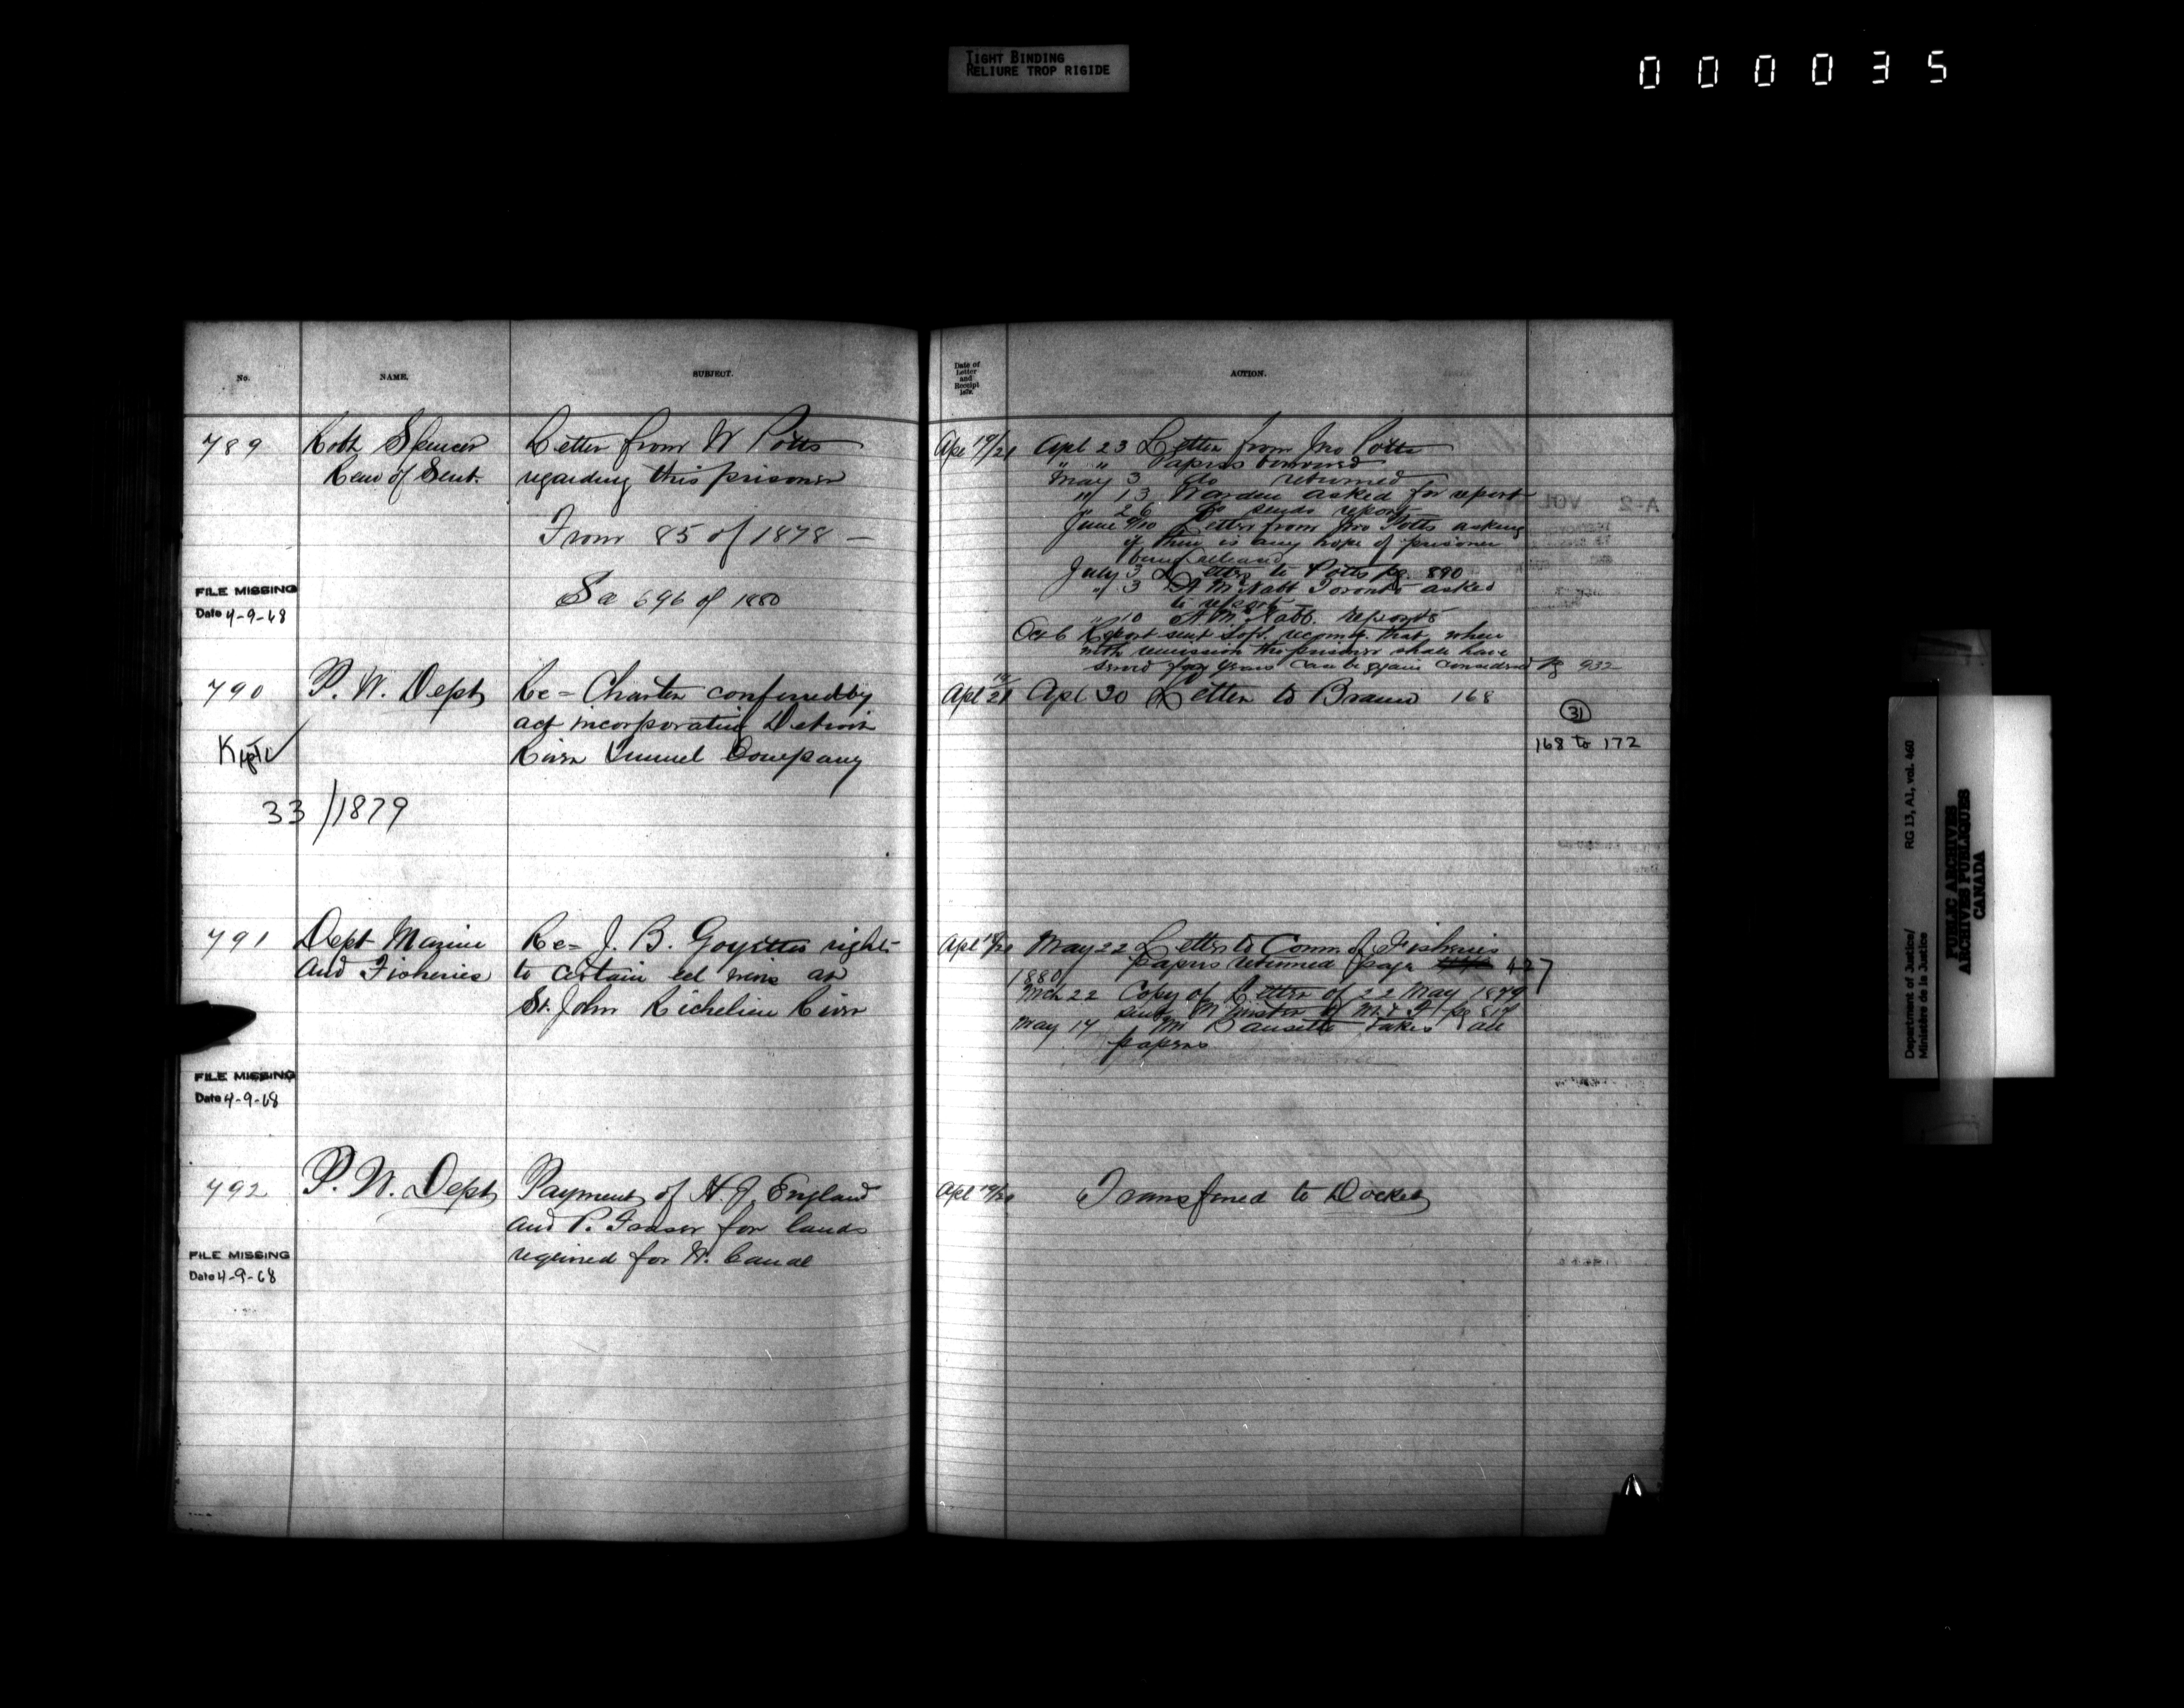 TIGHT BINDING
RELIURE TROP RIGIDE
000035
No.
NAME.
SUBJECT.
789
Robt Spencer
Rem of Sent.
Letter from W Potts
regarding this prisoner
From 85 of 1878 —
Sa 696 of 1880
FILE MISSING
Date 4-9-68
790
P. W. Dept
Re = Charter conferred by
act incorporating Detroit
River Tunnel Company
33/1879
791
Dept Marine
and Fisheries
Re = J. B. Goyette's rights
to certain eel weirs at
St. John Richelieu River
FILE MISSING
Date 4-9-68
792
P. W. Dept
Payment of H. J. England
and P. Fraser for lands
required for W. Canal
FILE MISSING
Date 4-9-68
Date of
Letter
and
Receipt
1879.
ACTION.
Apl 19/21
Apl 23 Letter from Jno Potts
" " Papers borrowed
May 3 do returned
" 13 Warden asked for report
" 26 do sends report
June 9/10 Letter from Jno Potts asking
if there is any hope of prisoner
being released
July 3 Letter to Potts pg. 890
" 3 A McNabb Toronto asked
to report
" 10 A McNabb. reports
Oct 6 Report sent that when
with remission the prisoner shall have
served years can be again considered pg 932
Apl 19/21
Apl 30 Letter to Braun 168
31
168 to 172
Apl 18/21
May 22 Letter to Comm. of Fisheries
papers returned page 427
1880
Mch 22 Copy of Letter of 22 May 1879
sent Minister of M. & F. pg 817
May 14 Mr takes all
papers
Apl 19/21
Transferred to Docket
Department of Justice/
Ministère de la Justice
RG 13, A1, vol. 460
PUBLIC ARCHIVES
ARCHIVES PUBLIQUES
CANADA